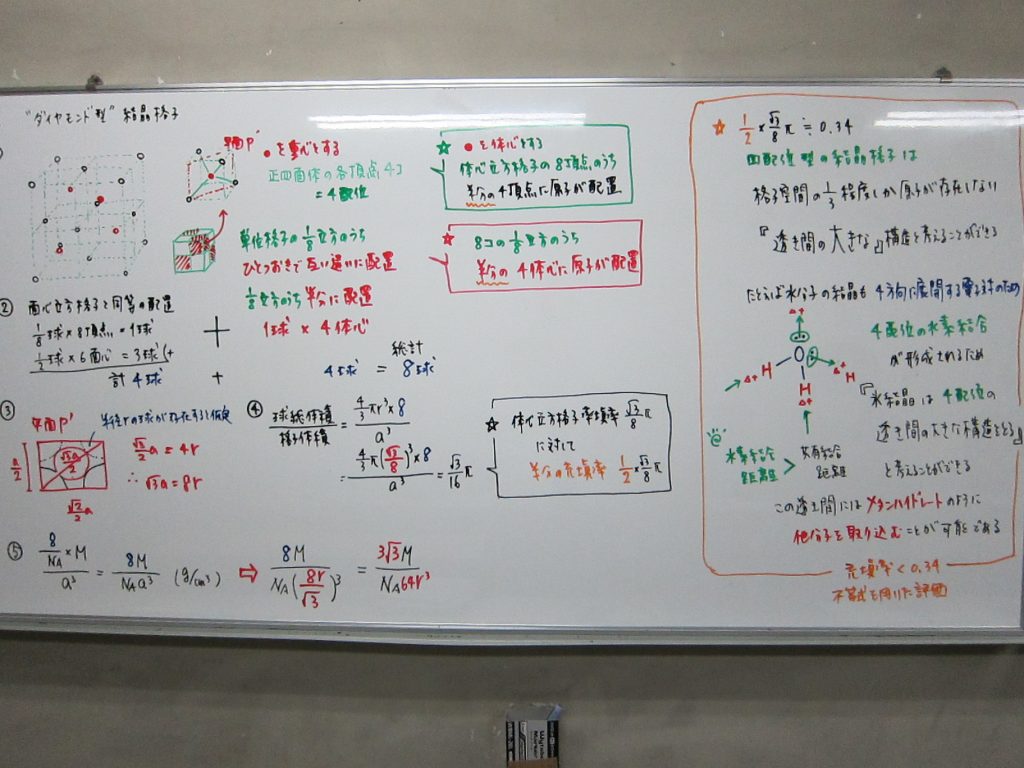 "ダイヤモンド型" 結晶格子
平面P'
●を重心とする
正四面体の各頂点4コ
=4配位
単位格子の1/8立方のうち
ひとつおきで互い違いに配置
1/8立方のうち半分に配置
1球 × 4体心
☆ ●を体心とする
体心立方格子の8頂点のうち
半分の4頂点に原子が配置
☆ 8コの1/8立方のうち
半分の4体心に原子が配置
② 面心立方格子と同等の配置
1/8球×8頂点=1球
1/2球×6面心=3球 (+
計 4球
+
+
総計
4球 = 8球
③ 平面P'
半径rの球が存在すると仮定
a/2
√3a/2
√2/2 a
√3/2 a = 4r
∴ √3a = 8r
④ 球総体積/格子体積 = (4/3 πr³×8)/a³
= (4/3 π(√3/8)³×8)/a³ = √3/16 π
☆ 体心立方格子充填率 √3/8 π
に対して
半分の充填率 1/2×√3/8 π
⑤ (8/NA × M)/a³ = 8M/NAa³ (g/cm³) ⇨ 8M/NA(8r/√3)³ = 3√3M/NA64r³
☆ 1/2×√3/8 π ≒ 0.34
四配位型の結晶格子は
格子空間の1/3程度しか原子が存在しない
『透き間の大きな』構造と考えることができる
たとえば水分子の結晶も4方向に展開する電子対のため
Δ+
O
H
H
H
Δ+
Δ+
Δ+
4配位の水素結合
が形成されるため
『氷結晶は4配位の
透き間の大きな構造をとる』
と考えることができる
水素結合
距離
>
共有結合
距離
この透き間にはメタンハイドレートのように
他分子を取り込むことが可能である
充填率<0.34
不等式を用いた評価